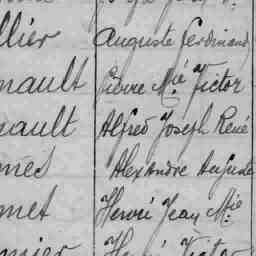 llier Auguste Ferdinand
nault Pierre Mie Victor
nault Alfred Joseph René
nes Alexandre Auguste
met Henri Jean Mie
mier Henri Victor